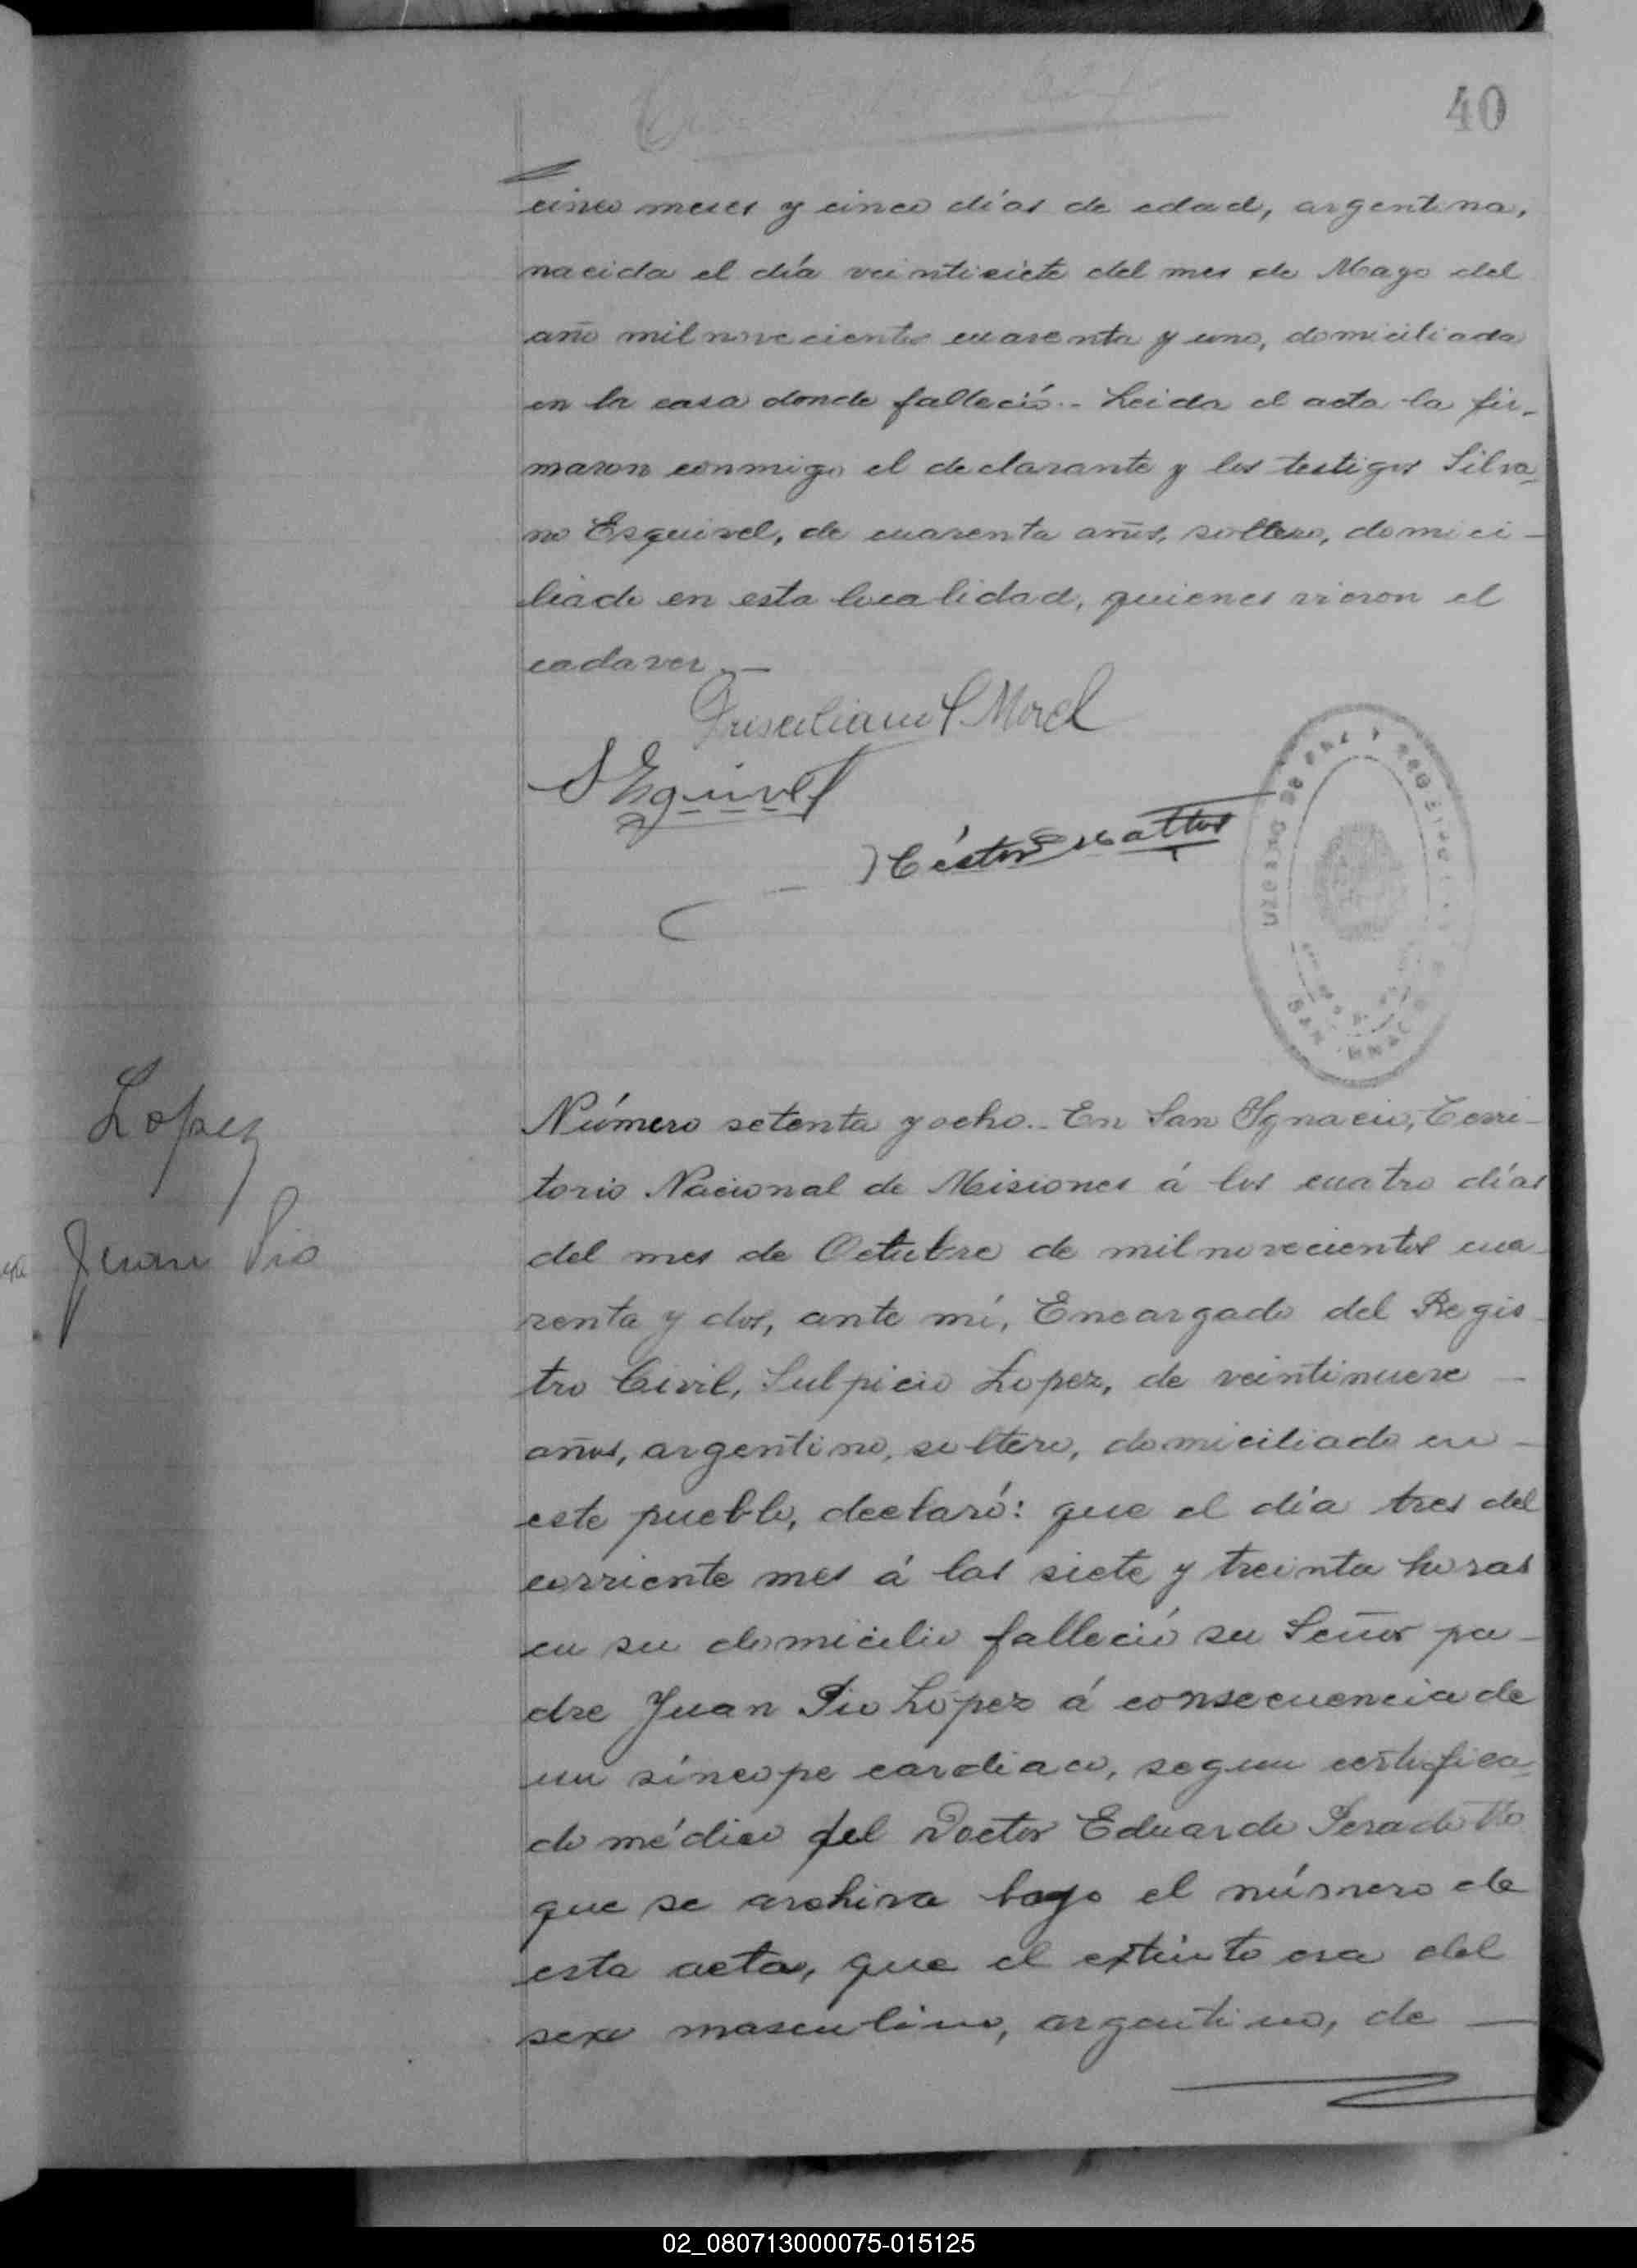 40
cinco meses y cinco días de edad, argentina,
nacida el día veintisiete del mes de Mayo del
año mil novecientos cuarenta y uno, domiciliada
en la casa donde falleció.- Leida el acta la fir-
maron conmigo el declarante y los testigos Silva-
no Esquivel, de cuarenta años, soltero, domici-
liado en esta localidad, quienes vieron el
cadaver.—
Prisciliano Morel
S Esquivel
Héctor Mattos
Lopez
Juan Pio
Número setenta y ocho.- En San Ygnacio, Terri-
torio Nacional de Misiones á los cuatro días
del mes de Octubre de mil novecientos cua-
renta y dos, ante mí, Encargado del Regis-
tro Civil, Sulpicio Lopez, de veintinueve —
años, argentino, soltero, domiciliado en —
este pueblo, declaró: que el día tres del
corriente mes á las siete y treinta horas
en su domicilio falleció su Señor pa-
dre Juan Pio Lopez á consecuencia de
un síncope cardiaco, segun certifica-
do médico del Doctor Eduardo Peradotto
que se archiva bajo el número de
esta acta, que el extinto era del
sexo masculino, argentino, de —
02_080713000075-015125